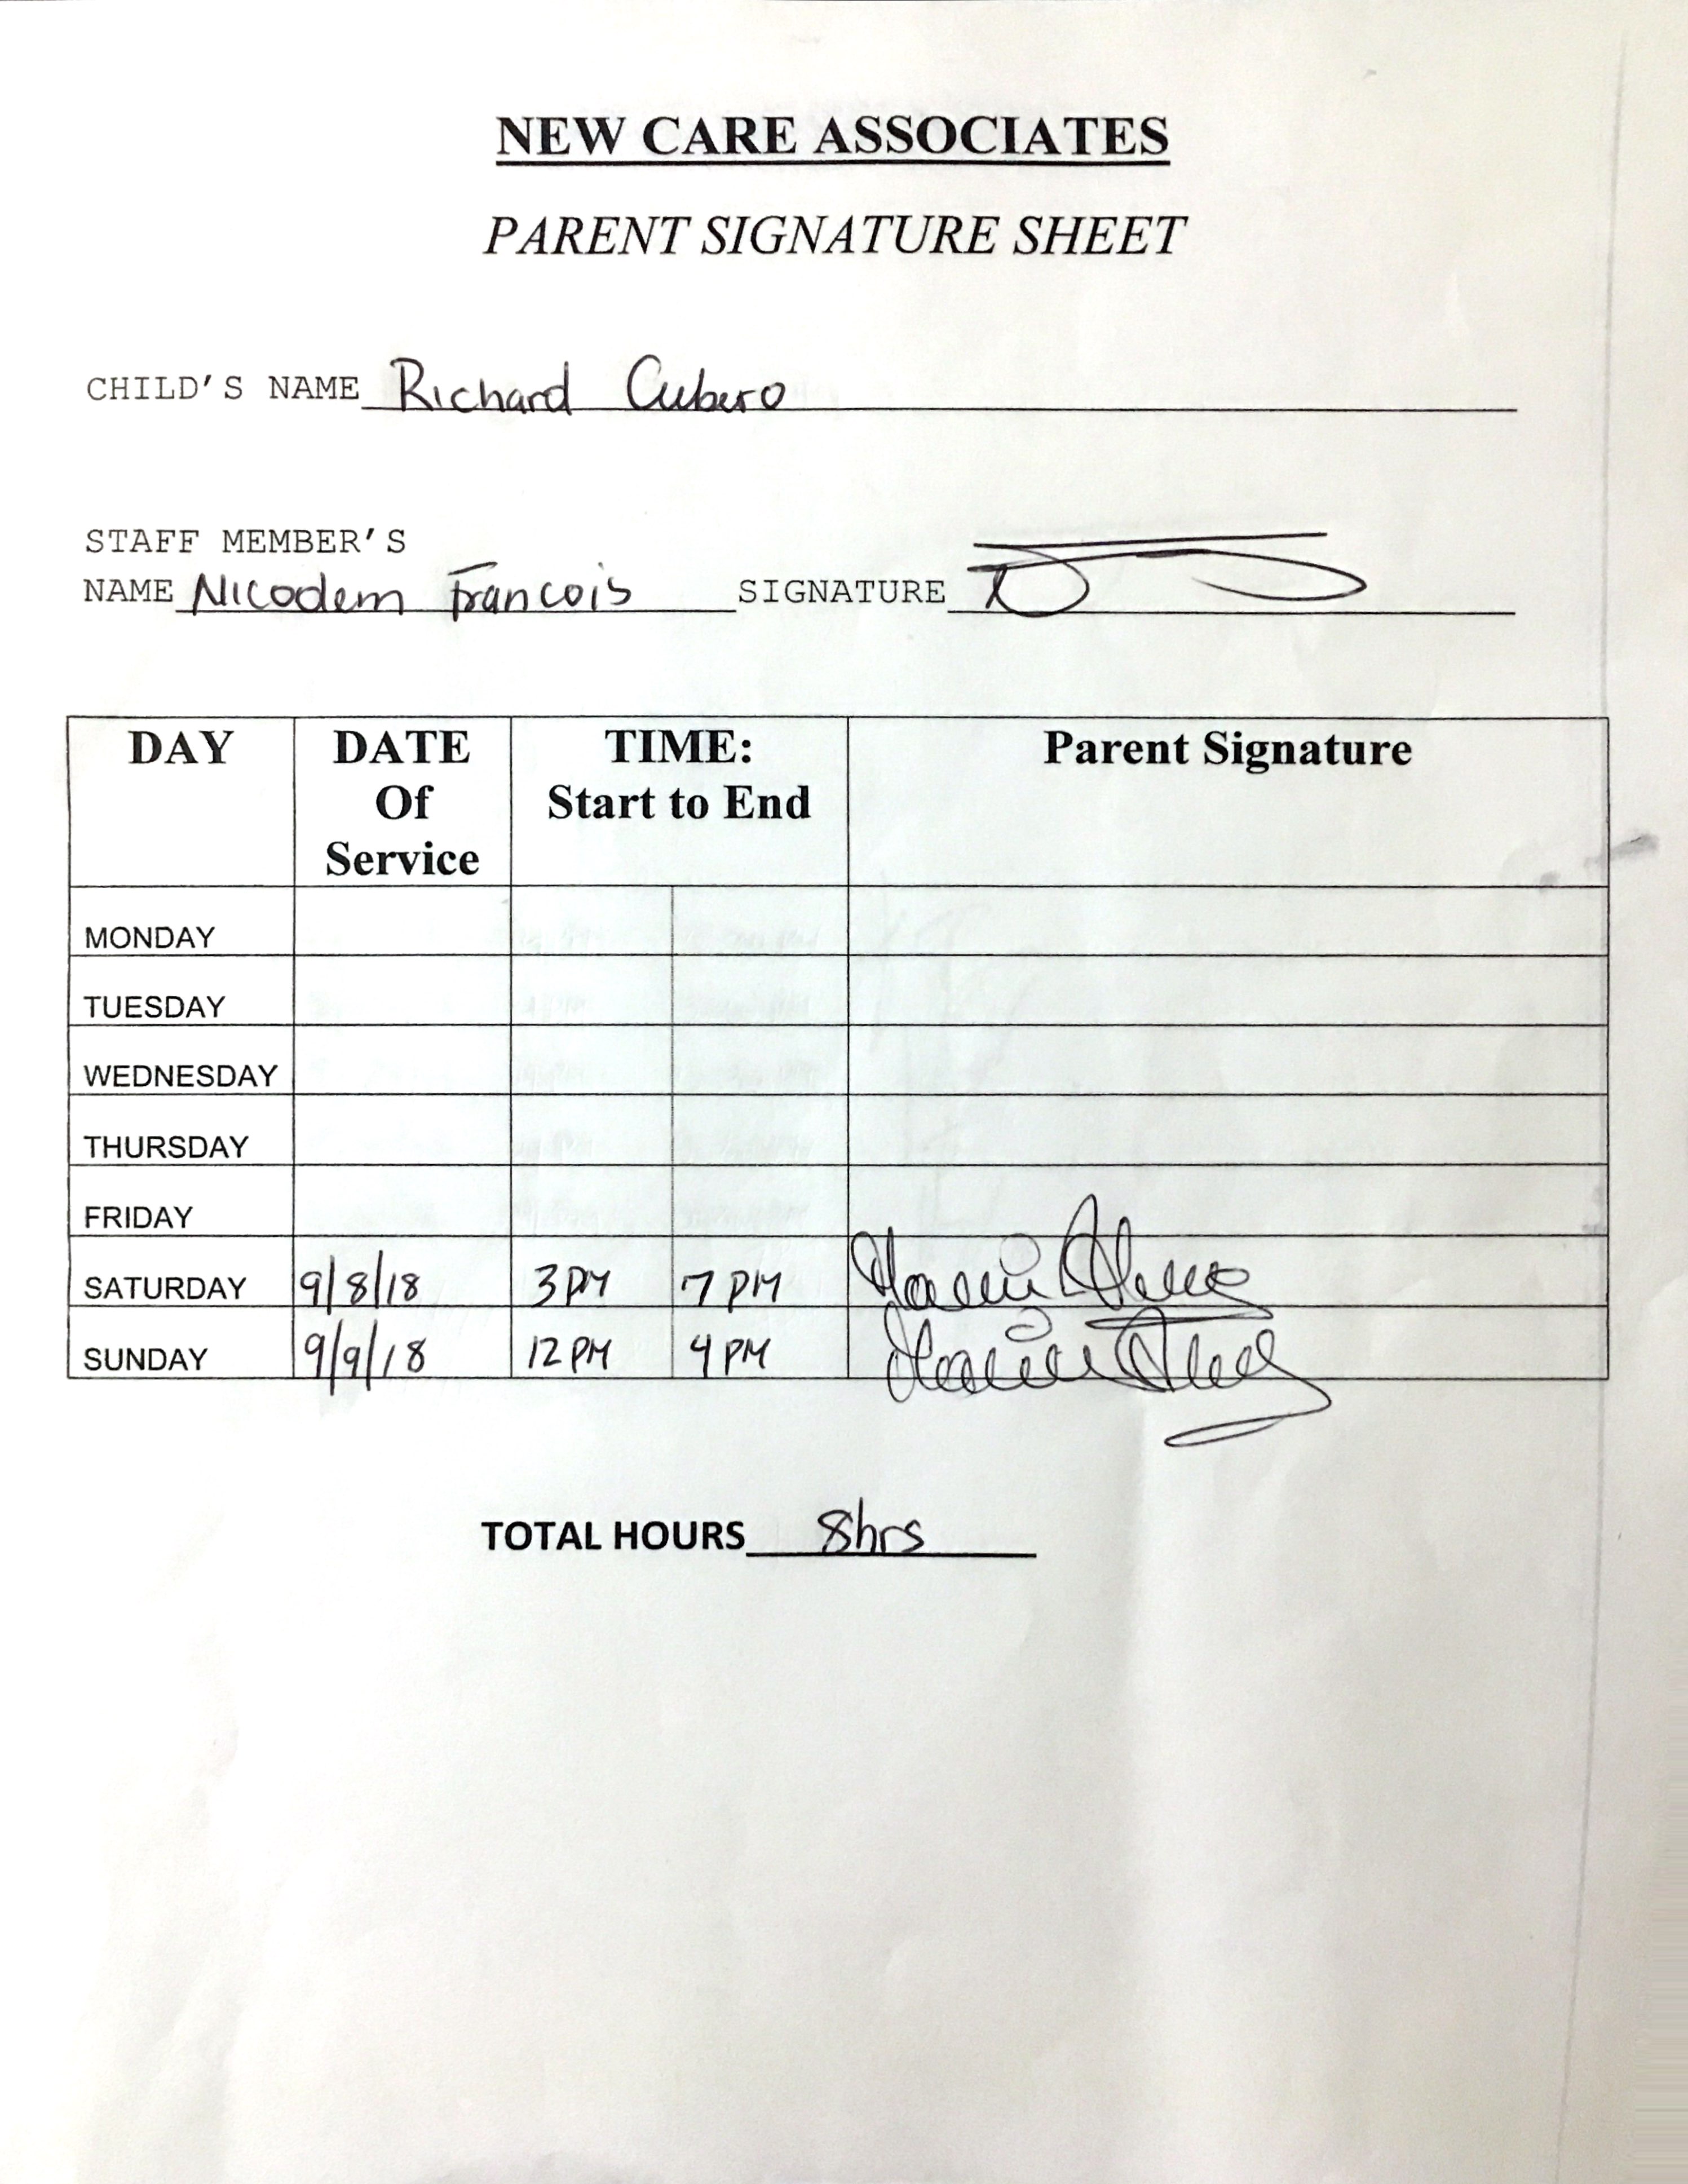 NEW CARE ASSOCIATES
PARENT SIGNATURE SHEET
CHILD'S NAME Richard Cubero
STAFF MEMBER'S
NAME Nicodem Francois SIGNATURE
DAY DATE Of Service TIME: Start to End Parent Signature
MONDAY
TUESDAY
WEDNESDAY
THURSDAY
FRIDAY
SATURDAY 9/8/18 3 PM 7 PM
SUNDAY 9/9/18 12 PM 4 PM
TOTAL HOURS 8hrs